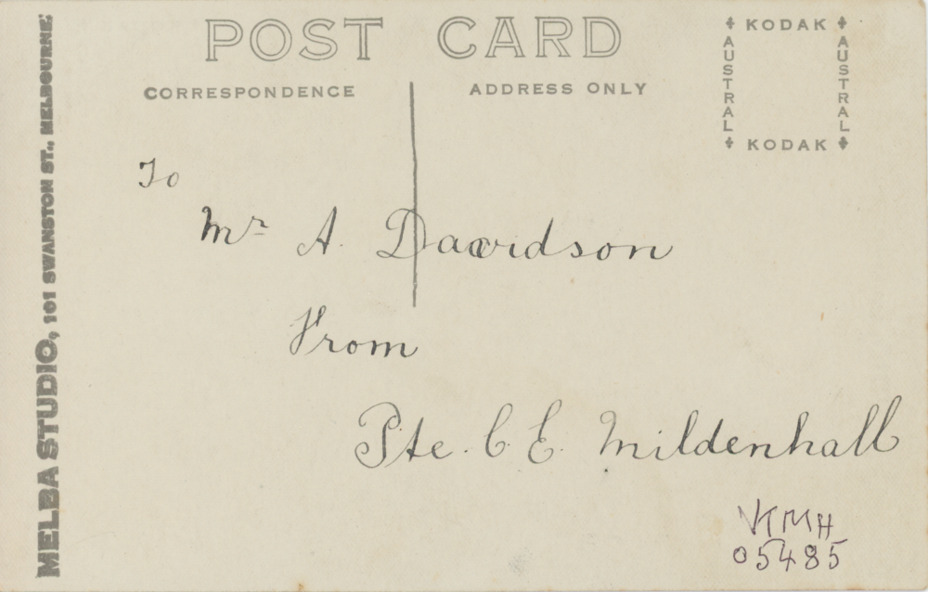 POST CARD
CORRESPONDENCE
ADDRESS ONLY
KODAK
AUSTRAL
AUSTRAL
KODAK
MELBA STUDIO, 101 SWANSTON ST., MELBOURNE.
To
Mr A. Davidson
From
Pte. C. E. Mildenhall
VKMH
05485